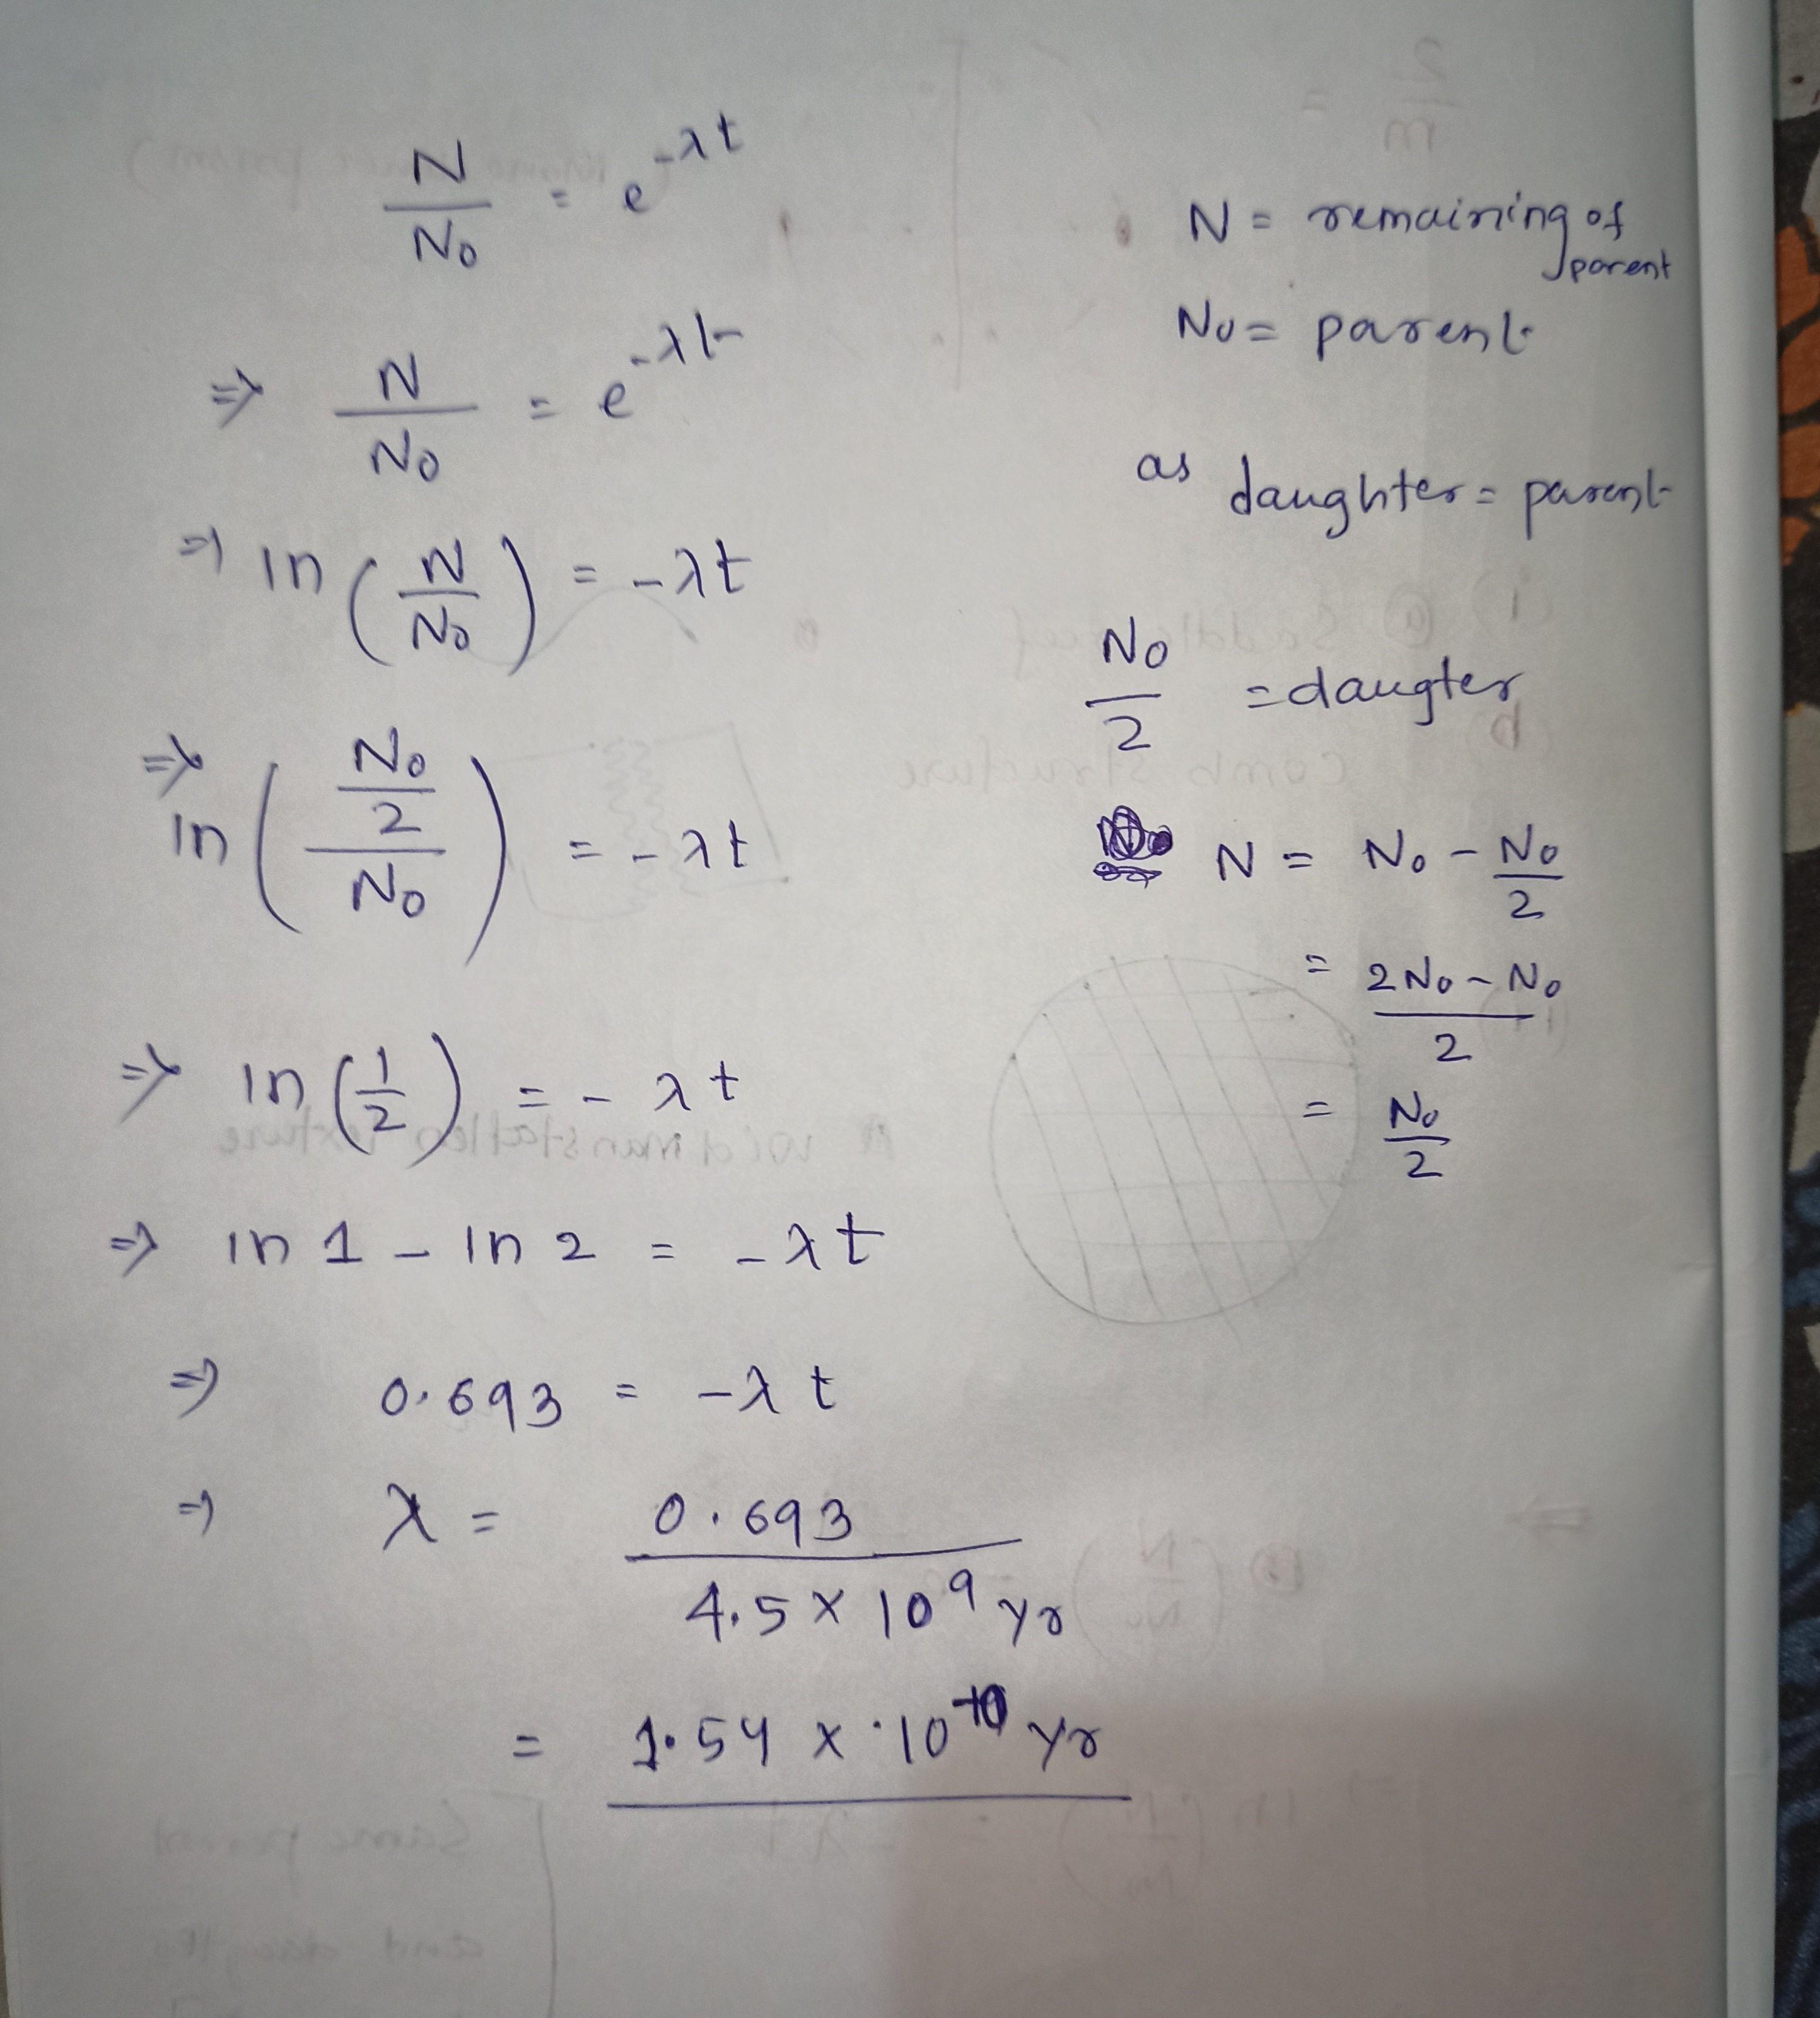 N/No = e^-λt
⇒ N/No = e^-λt
⇒ ln (N/No) = -λt
⇒ ln ((No/2)/No) = -λt
⇒ ln (1/2) = -λt
⇒ ln 1 - ln 2 = -λt
⇒ 0.693 = -λt
⇒ λ = 0.693 / 4.5 × 10^9 yr
= 1.54 × 10^-10 yr
N = remaining of parent
No = parent
as daughter = parent
No/2 = daugter
N = No - No/2
= 2No - No / 2
= No/2